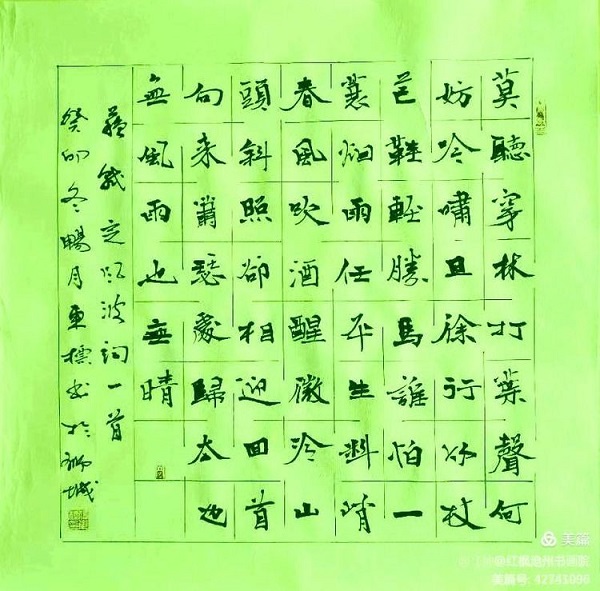 莫聽穿林打葉聲何
妨吟嘯且徐行竹杖
芒鞋輕勝馬誰怕一
蓑烟雨任平生料峭
春風吹酒醒微冷山
頭斜照卻相迎回首
向来蕭瑟處歸去也
無風雨也無晴
蘇軾定風波詞一首
癸卯冬暢月书於城
美篇